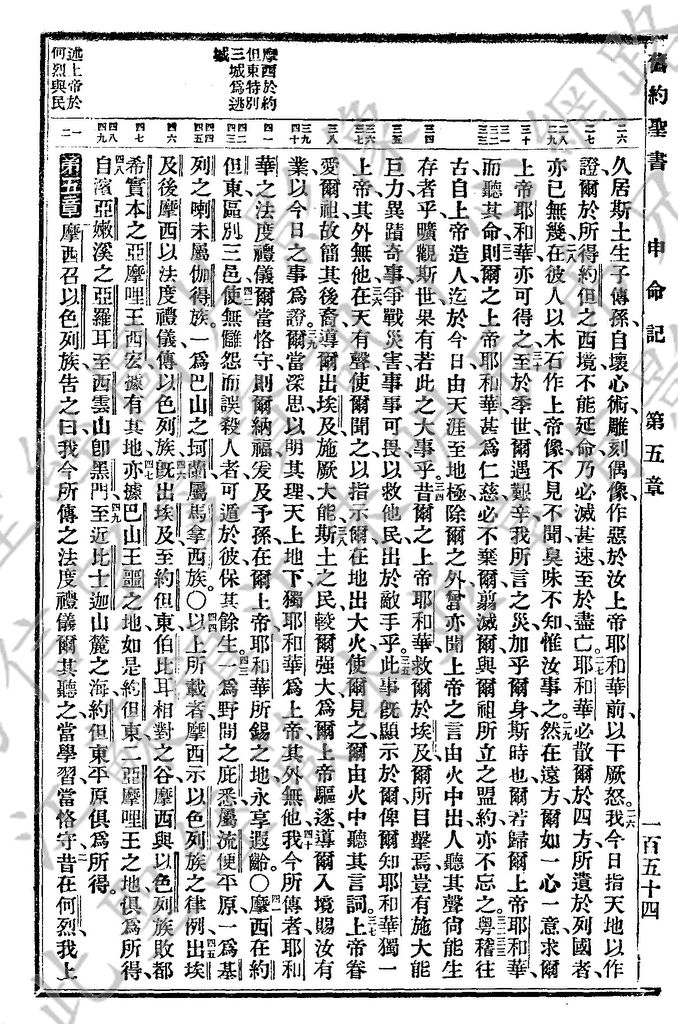 舊約聖書 申命記 第五章 一百五十四
久居斯土生子傳孫自壞心術雕刻偶像作惡於汝上帝耶和華前以干厥怒二六我今日指天地以作
證爾於所得約但之西境不能延命乃必滅甚速至於盡亡二七耶和華必散爾於四方所遣於列國者
亦已無幾二八在彼人以木石作上帝像不見不聞臭味不知惟汝事之二九然在遠方爾如一心一意求爾
上帝耶和華亦可得之三十至於季世爾遇艱辛我所言之災加乎爾身斯時也爾若歸爾上帝耶和華
而聽其命三一則爾之上帝耶和華甚爲仁慈必不棄爾翦滅爾與爾祖所立之盟約亦不忘之三二三三粤稽往
古自上帝造人迄於今日由天涯至地極除爾之外曾亦聞上帝之言由火中出人聽其聲尙能生
存者乎曠觀斯世果有若此之大事乎三四昔爾之上帝耶和華救爾於埃及爾所目擊焉豈有施大能
巨力異蹟奇事爭戰災害事事可畏以救他民出於敵手乎三五此事旣顯示於爾俾爾知耶和華獨一
上帝其外無他三六在天有聲使爾聞之以指示爾在地出大火使爾見之爾由火中聽其言詞三七上帝眷
愛爾祖故簡其後裔導爾出埃及施厥大能三八斯土之民較爾強大爲爾上帝驅逐導爾入境賜汝有
業以今日之事爲證三九爾當深思以明其理天上地下獨耶和華爲上帝其外無他四十我今所傳者耶和
華之法度禮儀爾當恪守則爾納福爰及予孫在爾上帝耶和華所錫之地永享遐齡〇四一摩西在約
但東區別三邑四二使無讎怨而誤殺人者可遁於彼保其餘生四三一爲野間之庇悉屬流便平原一爲基
列之喇未屬伽得族一爲巴山之坷蘭屬馬拿西族〇四四以上所載者摩西示以色列族之律例四五出埃
及後摩西以法度禮儀傳以色列族四六旣出埃及至約但東伯比耳相對之谷摩西與以色列族敗都
希實本之亞摩哩王西宏據有其地四七亦據巴山王噩之地如是約但東二亞摩哩王之地俱爲所得
四八自濱亞嫩溪之亞羅耳至西雲山卽黑門四九至近比士迦山麓之海約但東平原俱爲所得
第五章 一摩西召以色列族告之曰我今所傳之法度禮儀爾其聽之當學習當恪守二昔在何烈我上
摩西於約
但東特別
三城爲逃
城
述上帝於
何烈與民